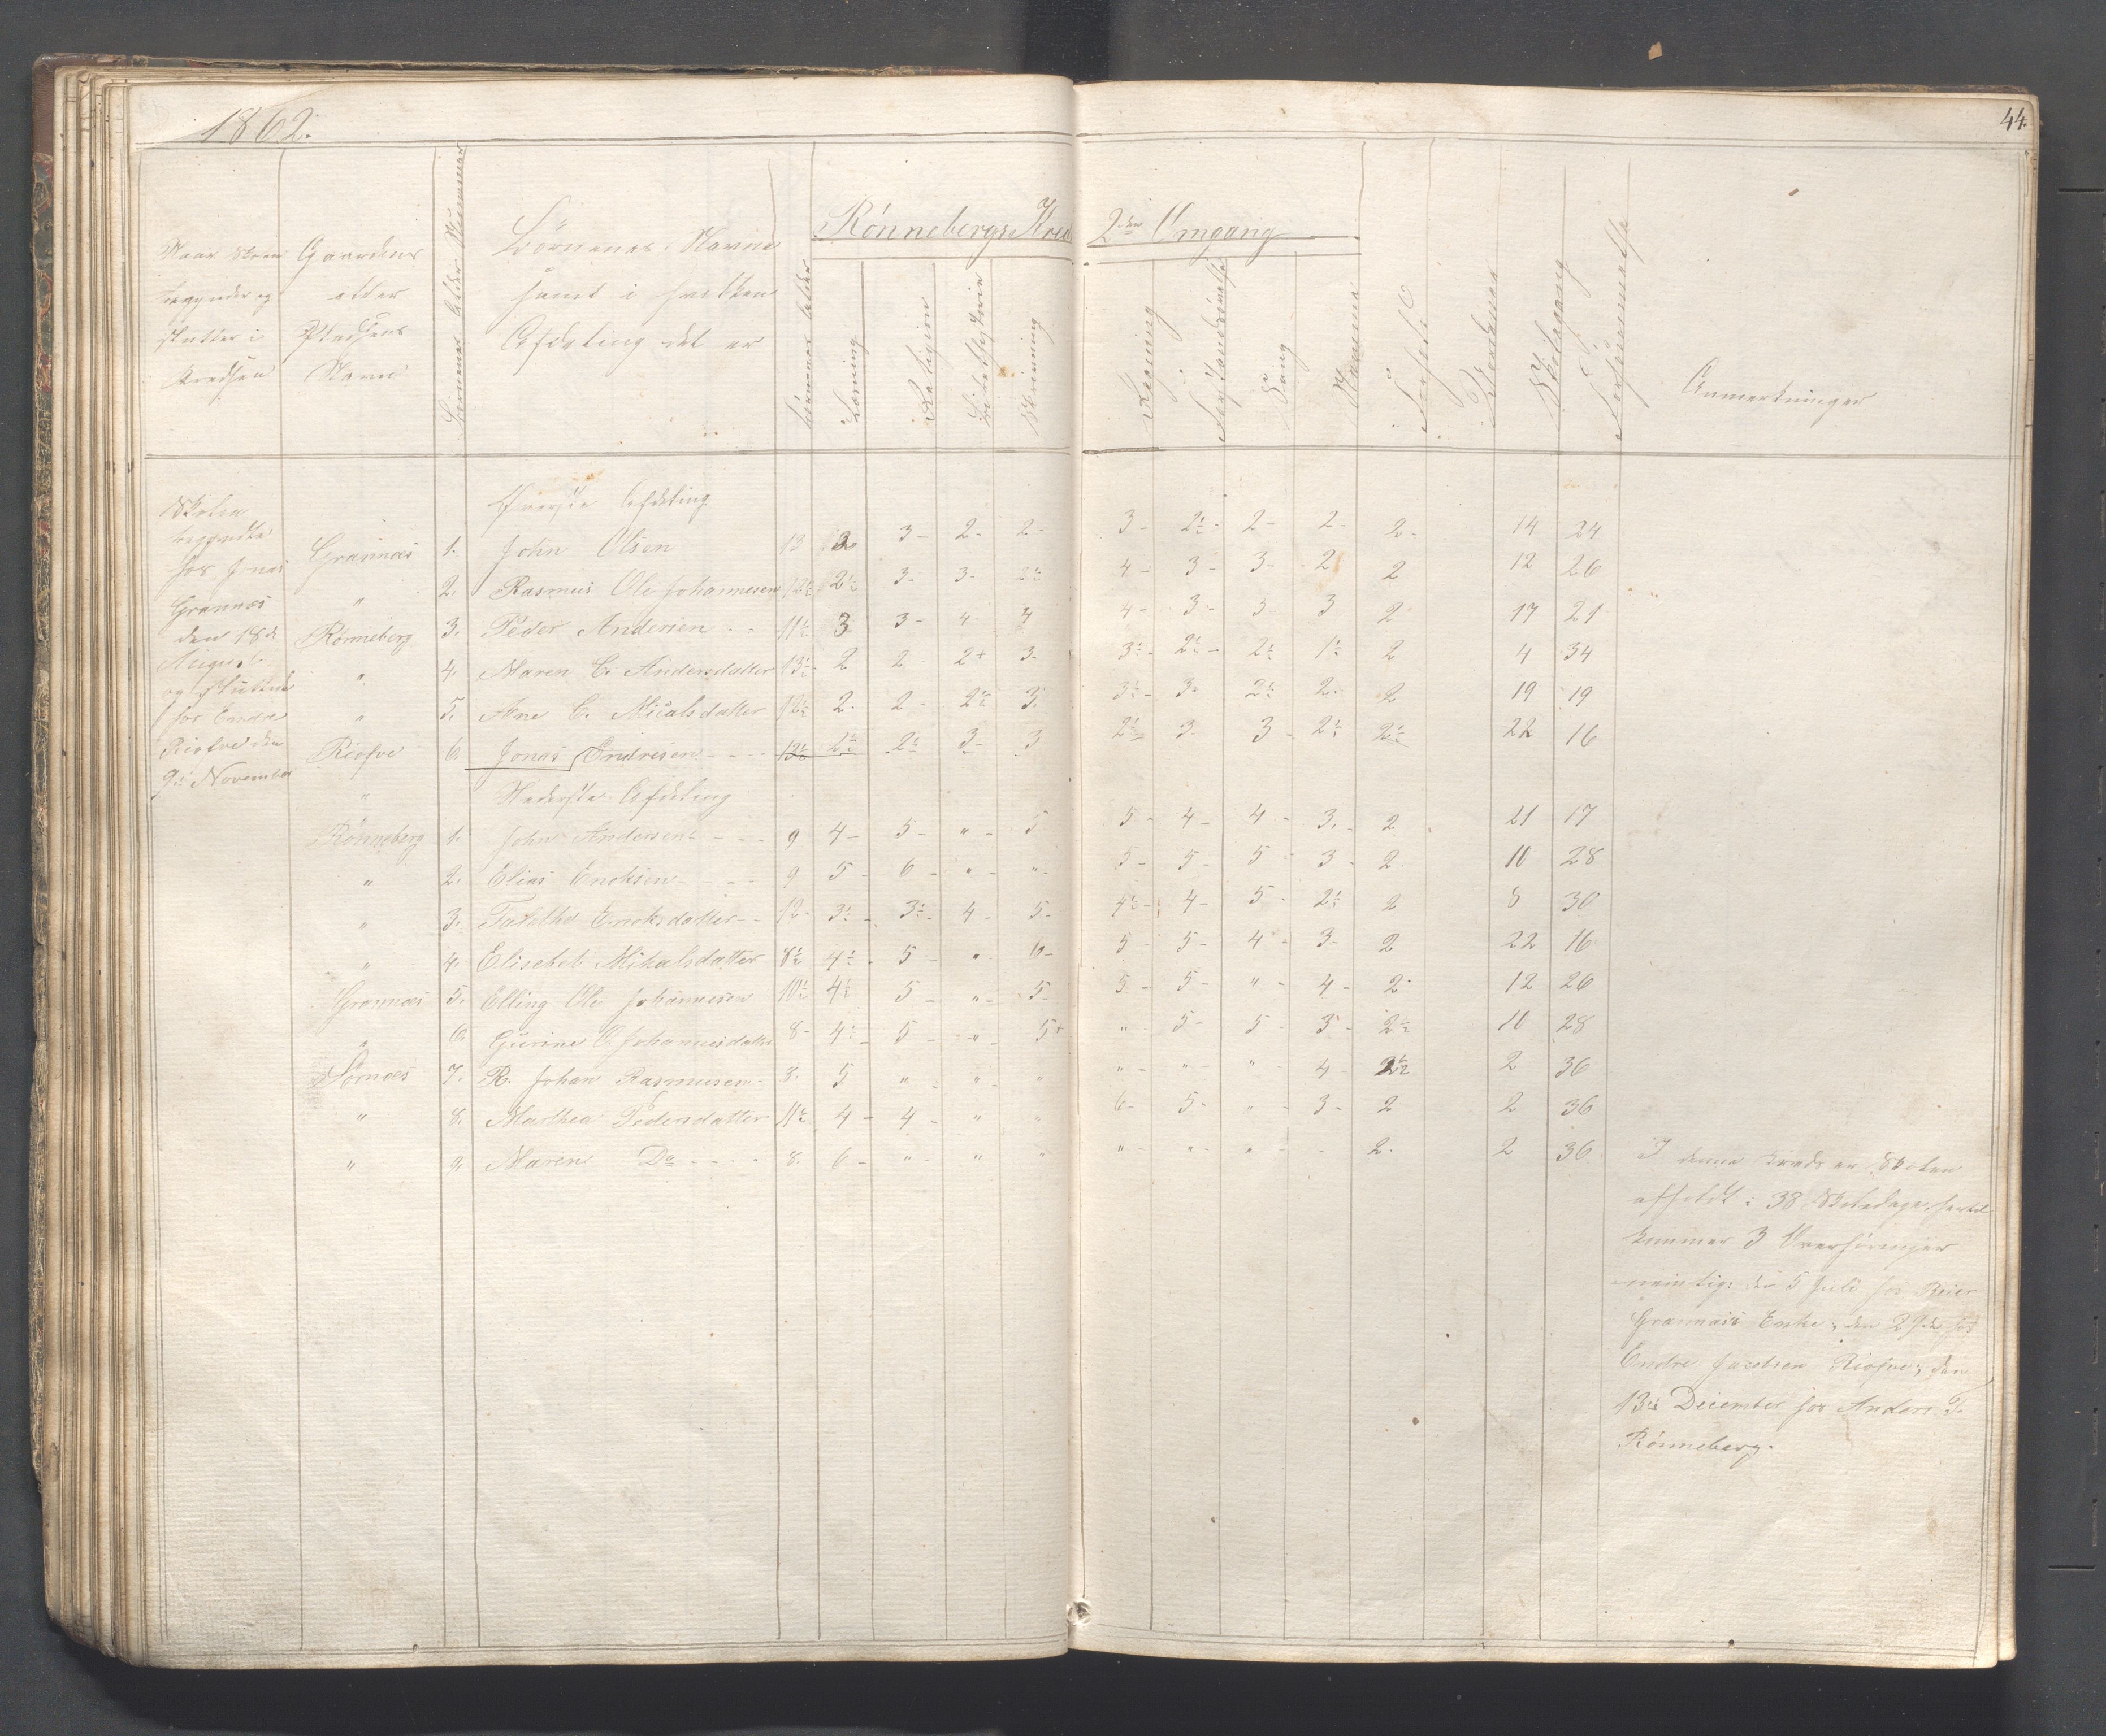 1862.
44.
Rønnebergs Kreds 2den Omgang
Naar Skolen
begynder og
slutter i
Kredsen
Gaardens
eller
Pladsens
Navn
Børnenes Navne
samt i hvilken
Afdeling det er
Børnenes Alder
Læsning
Religion
Bibelhistorie
Skrivning
Regning
Sang
Evne
Forhold
Skolegang
Forsømmelse
Anmerkninger
Skolen
begyndte
hos Jonas
Grannæs
den 18de
August
og sluttede
hos Endre
Riofve den
9de November
Øverste Afdeling
Grannæs 1. John Olsen 13 2 3- 2- 2- 3- 2½- 2- 2- 2- 14 24
" 2. Rasmus Ole Johannesen 12½ 2½ 3- 3- 2½ 4- 3- 3- 2 2 12 26
Rønneberg 3. Peder Andersen 11½ 3 3- 4- 4 4- 3- 3- 3 2 17 21
" 4. Maren C. Andersdatter 13½ 2 2 2+ 3- 3½- 2½- 2½ 1½ 2 4 34
" 5. Ane C. Micalsdatter 12½ 2- 2- 2½ 3. 3½- 3- 2½ 2- 2 19 19
Riofve 6. Jonas Endresen 13½ 2½ 2½ 3- 3 2½ 3- 3- 2½ 2½ 22 16
Nederste Afdeling
Rønneberg 1. John Andersen 9 4- 5- " 5 5- 4- 4- 3- 2 21 17
" 2. Elias Enoksen 9 5- 6- " " 5- 5- 5- 3- 2 10 28
" 3. Enoksdatter 12- 3½- 3½- 4- 5- 4½- 4- 5- 2½ 2 8 30
" 4. Elisebet Mikalsdatter 8½ 4½ 5- " 6- 5- 5- 4- 3- 2 22 16
Grannæs 5. Elling Ole Johannesen 10½ 4½ 5- " 5- 5- 5- " 4- 2- 12 26
" 6. Gurine O. Johannesdatter 8- 4½- 5- " 5+ " 5- 5- 3- 2½ 10 28
Sørnæs 7. R. Johan Rasmusen 8. 5 " " " " " " 4- 2½ 2 36
" 8. Marthea Pedersdatter 11½ 4- 4- " " 6- 5- " 3- 2 2 36
" 9. Maren Do 8. 6- " " " " " " - 2. 2 36
I denne Kreds er Skolen
afholdt i 38 Skoledage, hertil
kommer 3 Overhøringer
nemlig: den 5 Juli hos Reier
Grannæs Enke; den 29de hos
Endre Jacobsen Riofve; den
13de December hos Anders T.
Rønneberg.